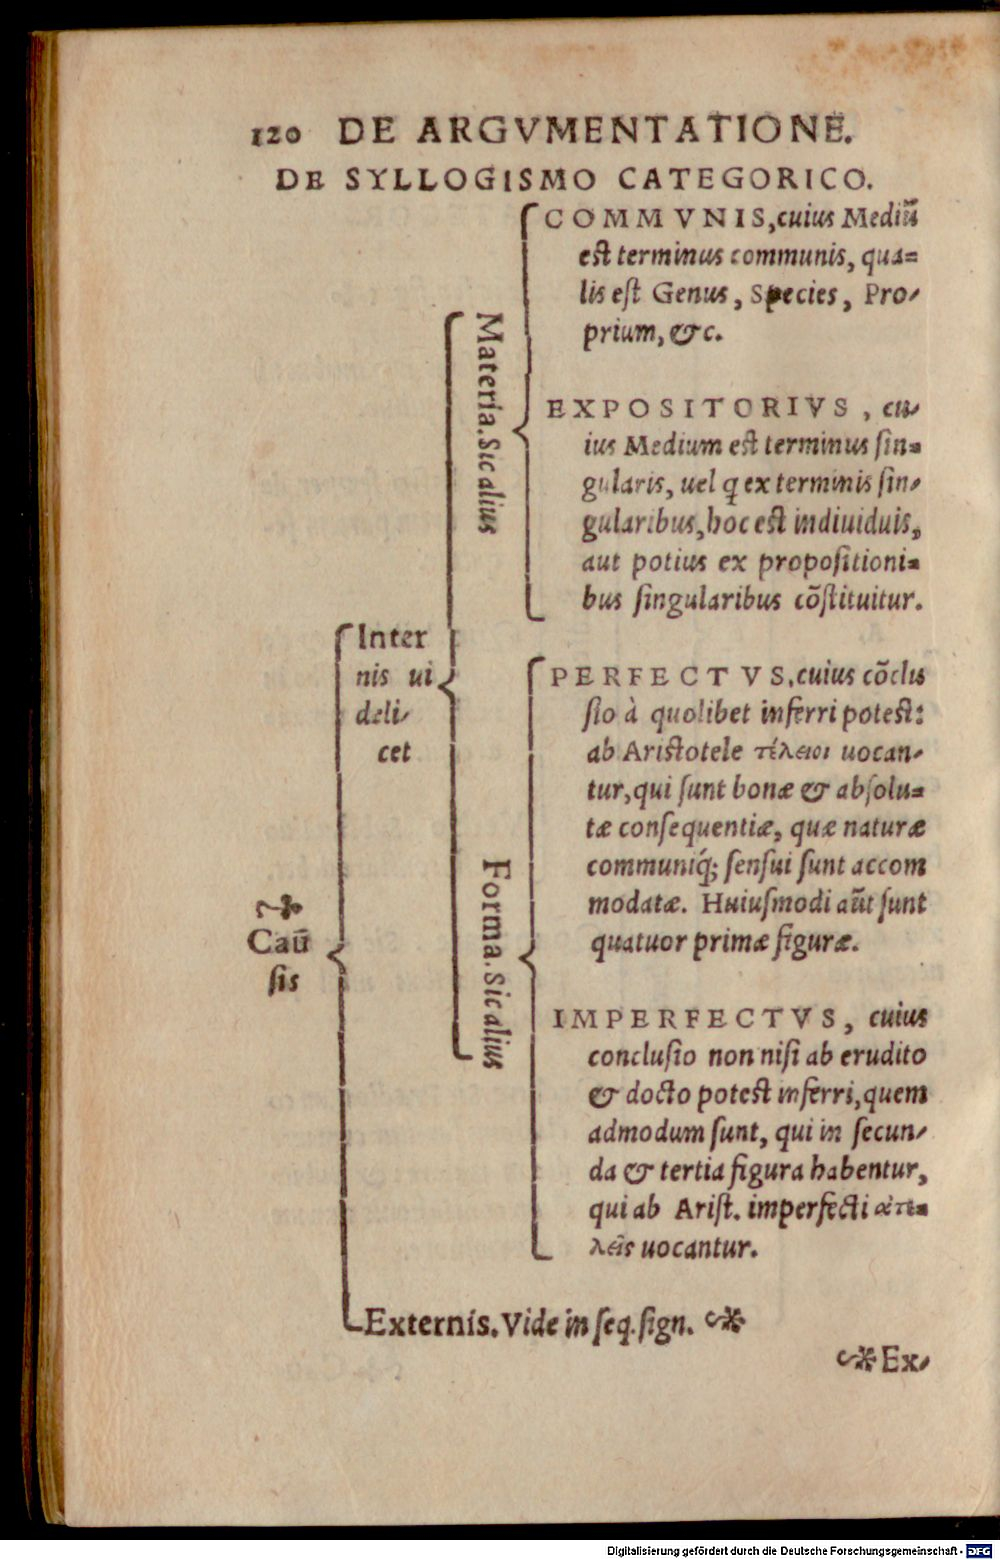 120 DE ARGVMENTATIONE.
DE SYLLOGISMO CATEGORICO.
Cau᷉
sis
Inter
nis ui
deli⸗
cet
Materia. Sic alius
COMMVNIS, cuius Mediũ
est terminus communis, qua⸗
lis est Genus, Species, Pro⸗
prium, &c.
EXPOSITORIVS, cu⸗
ius Medium est terminus sin⸗
gularis, uel ꝗ ex terminis sin⸗
gularibus, hoc est indiuiduis,
aut potius ex propositioni⸗
bus singularibus cõstituitur.
Forma. Sic alius
PERFECTVS, cuius cõclu
sio à quolibet inferri potest:
ab Aristotele τέλειοι uocan⸗
tur, qui sunt bonæ & absolu⸗
tæ consequentiæ, quæ naturæ
communiq́; sensui sunt accom
modatæ. Huiusmodi aũt sunt
quatuor primæ figuræ.
IMPERFECTVS, cuius
conclusio non nisi ab erudito
& docto potest inferri, quem
admodum sunt, qui in secun⸗
da & tertia figura habentur,
qui ab Arist. imperfecti ἀτε⸗
λεῖς uocantur.
Externis. Vide in seq. sign.
Ex⸗
Digitalisierung gefördert durch die Deutsche Forschungsgemeinschaft - DFG